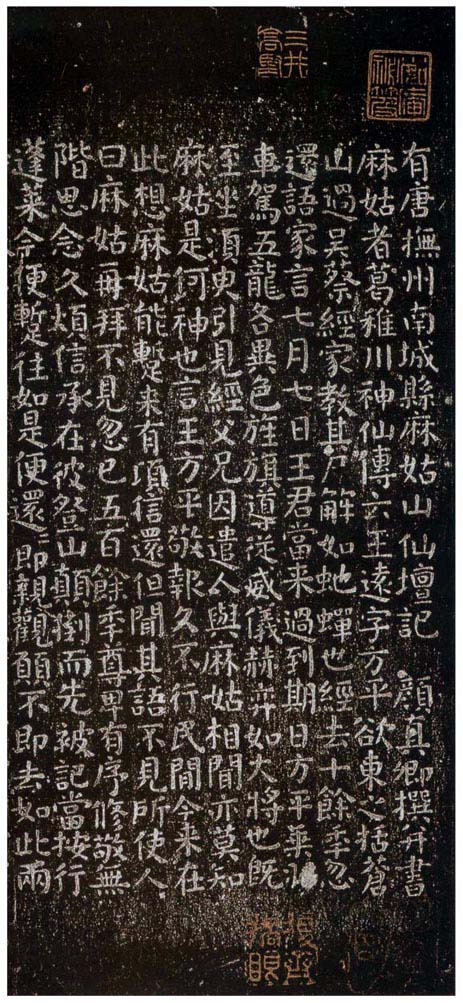 三井高堅
有唐撫州南城縣麻姑山仙壇記 顏真卿撰并書
麻姑者葛稚川神仙傳云王遠字方平欲東之括蒼
山過吳蔡經家教其尸解如虵蟬也經去十餘秊忽
還語家言七月七日王君當來過到期日方平乘羽
車駕五龍各異色旌旗導從威儀赫弈如大將也既
至坐須臾引見經父兄因遣人與麻姑相聞亦莫知
麻姑是何神也言王方平敬報久不行民間今来在
此想麻姑能蹔来有頃信還但聞其語不見所使人
曰麻姑再拜不見忽已五百餘秊尊卑有序修敬無
階思念久煩信承在彼登山顛倒而先被記當按行
蓬萊今便蹔往如是便還〻即親觀願不即去如此兩